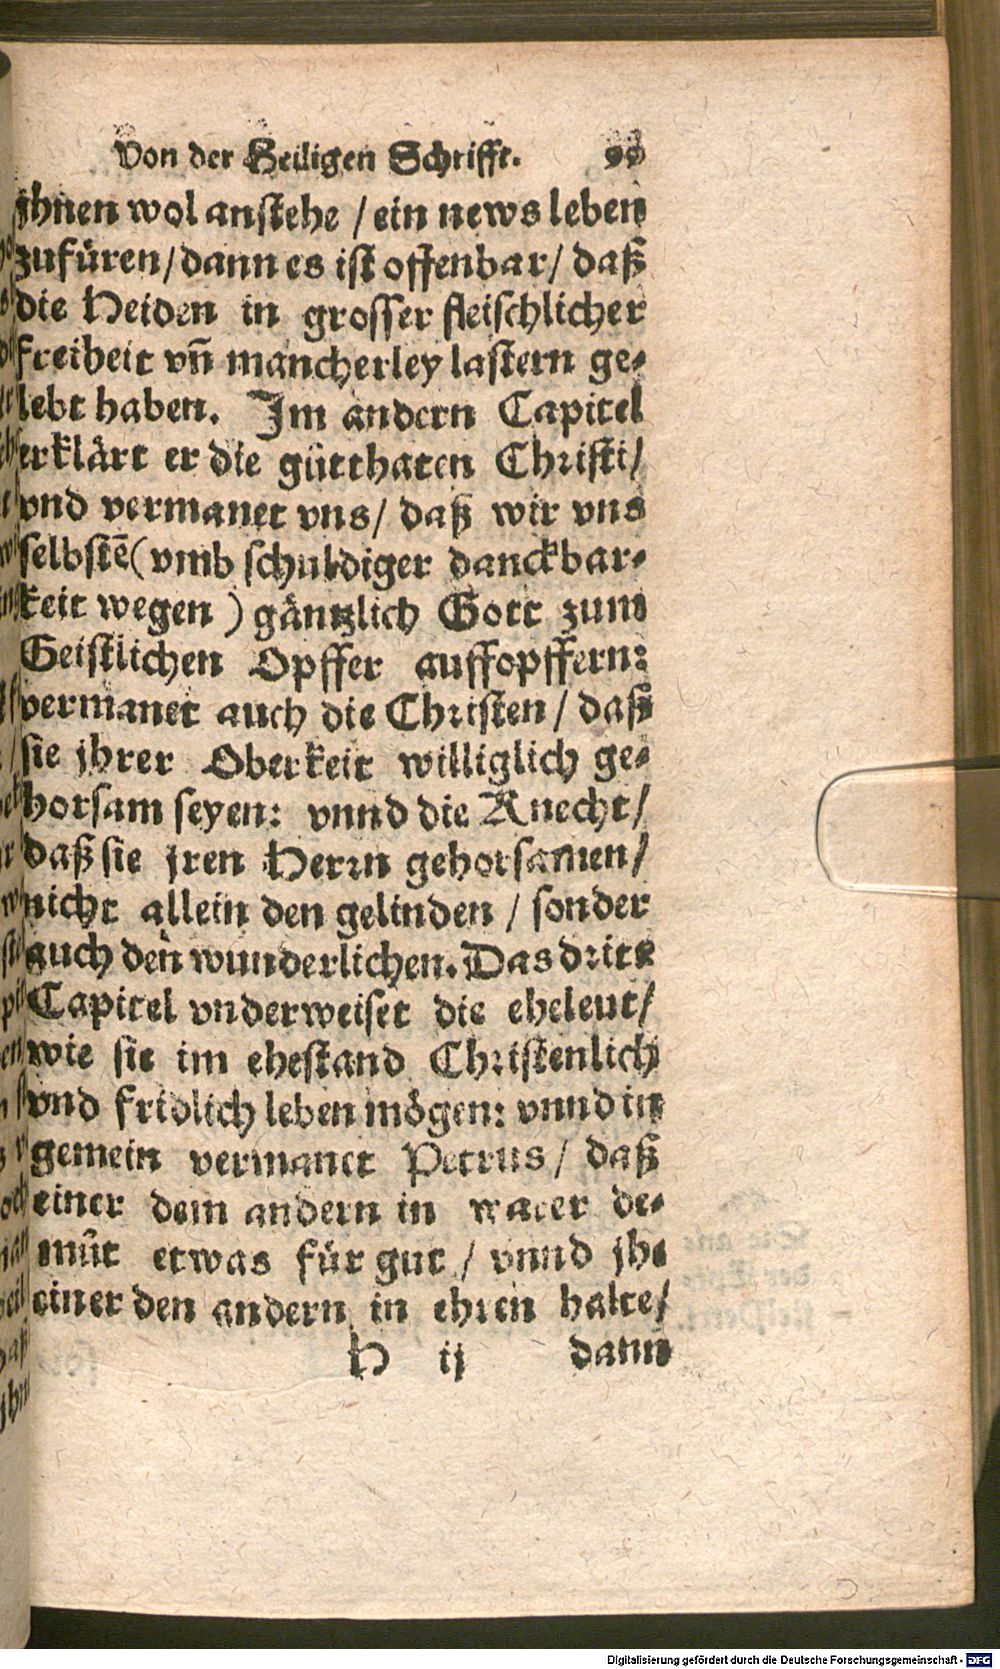 Von der Heiligen Schrifft. 99
jhnen wol anstehe / ein news leben
zufüren / dann es ist offenbar / daß
die Heiden in grosser fleischlicher
freiheit vñ mancherley lastern ge-
lebt haben. Im andern Capitel
erklärt er die gůtthaten Christi /
vnd vermanet vns / daß wir vns
selbstẽ (vmb schuldiger danckbar-
keit wegen) gäntzlich Gott zum
Geistlichen Opffer auffopffern:
vermanet auch die Christen / daß
sie jhrer Oberkeit williglich ge-
horsam seyen: vnnd die Knecht /
daß sie jren Herrn gehorsamen /
nicht allein den gelinden / sonder
auch den wunderlichen. Das dritt
Capitel vnderweiset die eheleut /
wie sie im ehestand Christenlich
vnd fridlich leben mögen: vnnd in
gemein vermanet Petrus / daß
einer dem andern in warer de-
můt etwas für gut / vnnd jhe
einer den andern in ehren halte /
H ij dann
Digitalisierung gefördert durch die Deutsche Forschungsgemeinschaft - DFG